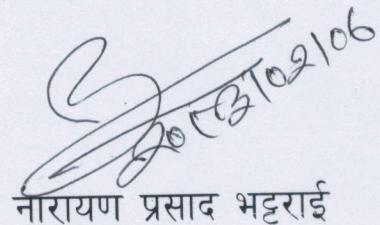 २०८३।०२।०६
नारायण प्रसाद भट्टराई